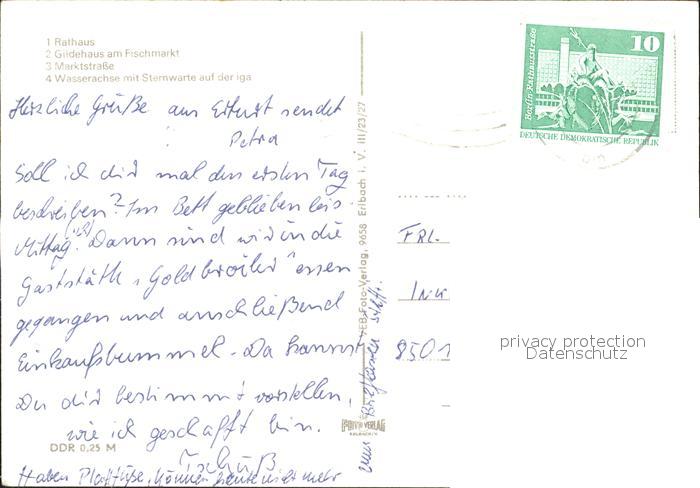 1 Rathaus
2 Gildehaus am Fischmarkt
3 Marktstraße
4 Wasserachse mit Sternwarte auf der iga
Herzliche Grüße aus Erfurt sendet
Petra
Soll ich dir mal den ersten Tag
beschreiben? Im Bett geblieben bis
Mittag. Dann sind wir in die
Gaststätte "Goldbroiler" essen
gegangen und anschließend
Einkaufsbummel. Da kannst
Du dir bestimmt vorstellen,
wie ich geschafft bin.
Tschüß
Haben Plattfüße, können heute nicht mehr
zum Briefkasten
DDR 0,25 M
VEB Foto-Verlag, 9658 Erlbach i. V. III/23/27
FOTO VERLAG
ERLBACH/V.
10
Berlin, Rathausstraße
DEUTSCHE DEMOKRATISCHE REPUBLIK
FRL.
8501
privacy protection
Datenschutz